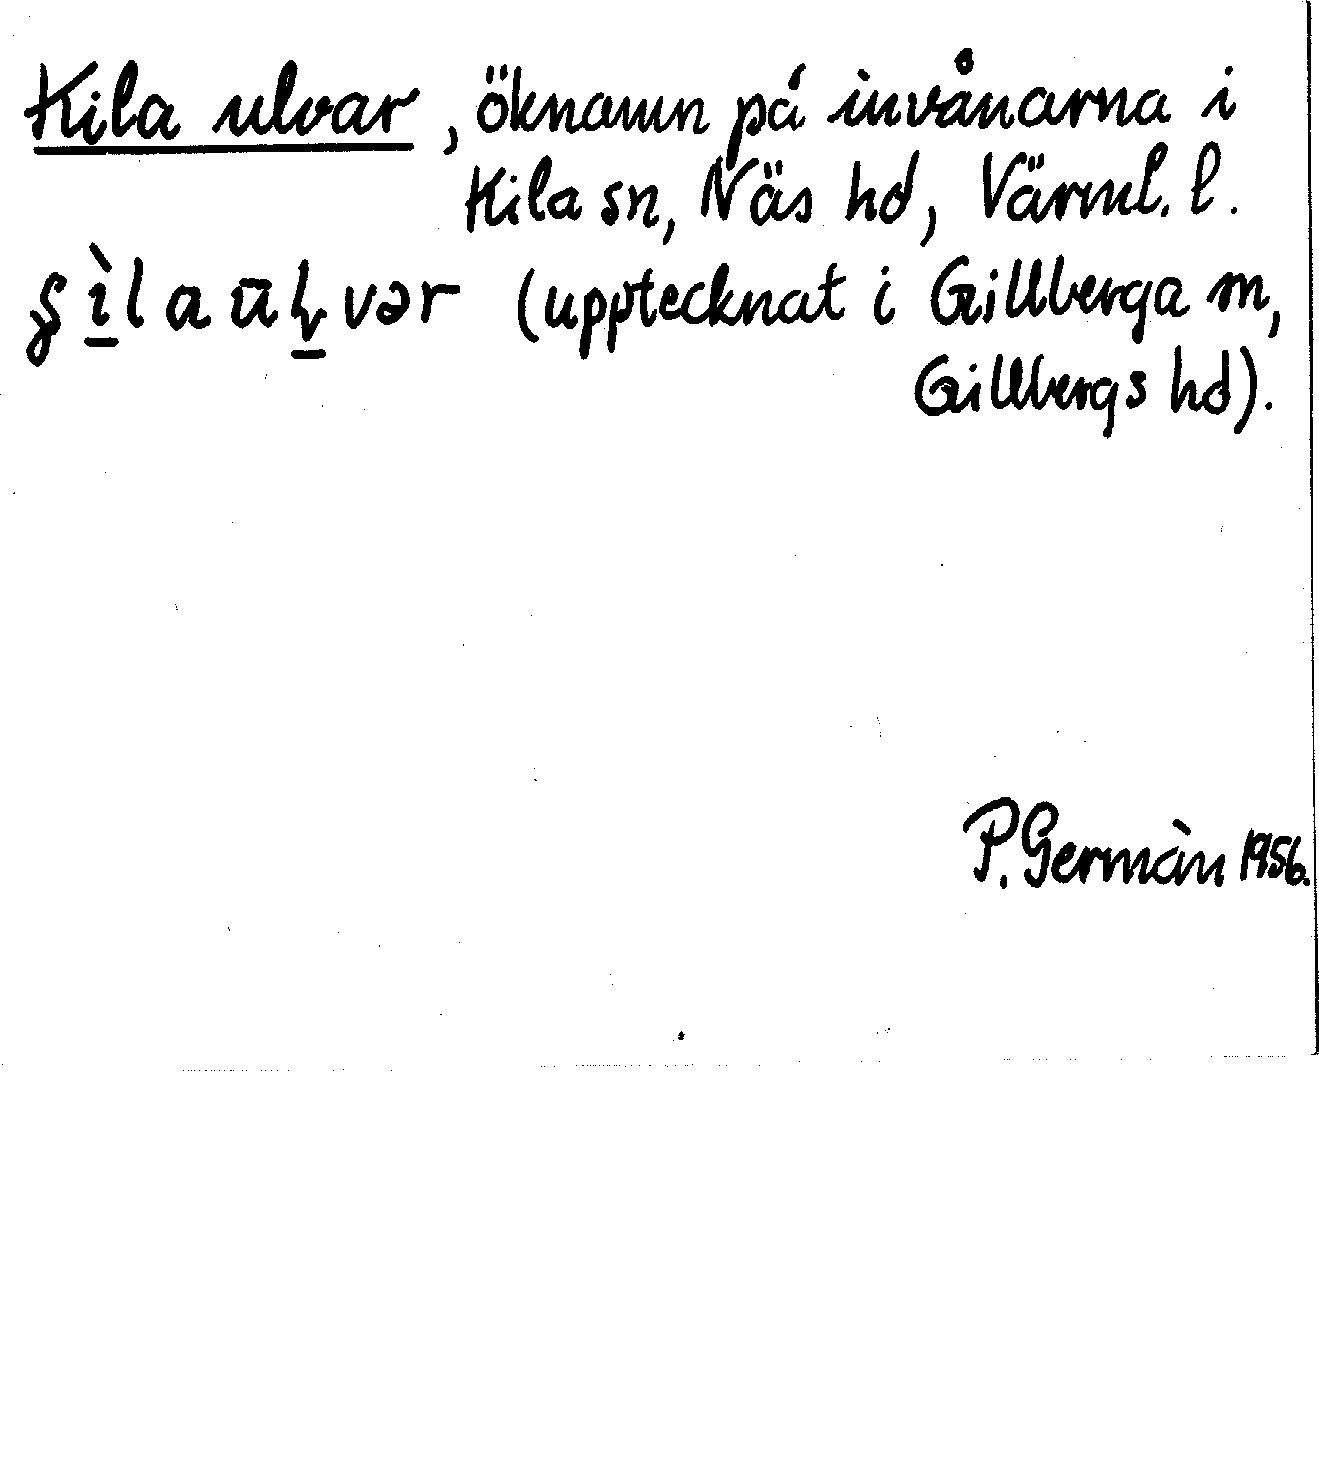 Kila ulvar, öknamn på invånarna i
Kila sn, Näs hd, Värml. l.
(upptecknat i Gillberga sn,
Gillbergs hd).
P. Germàn 1956.